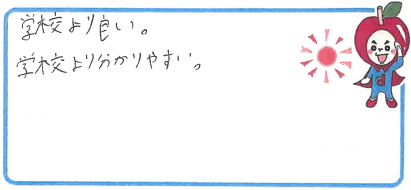 学校より良い。
学校より分かりやすい。